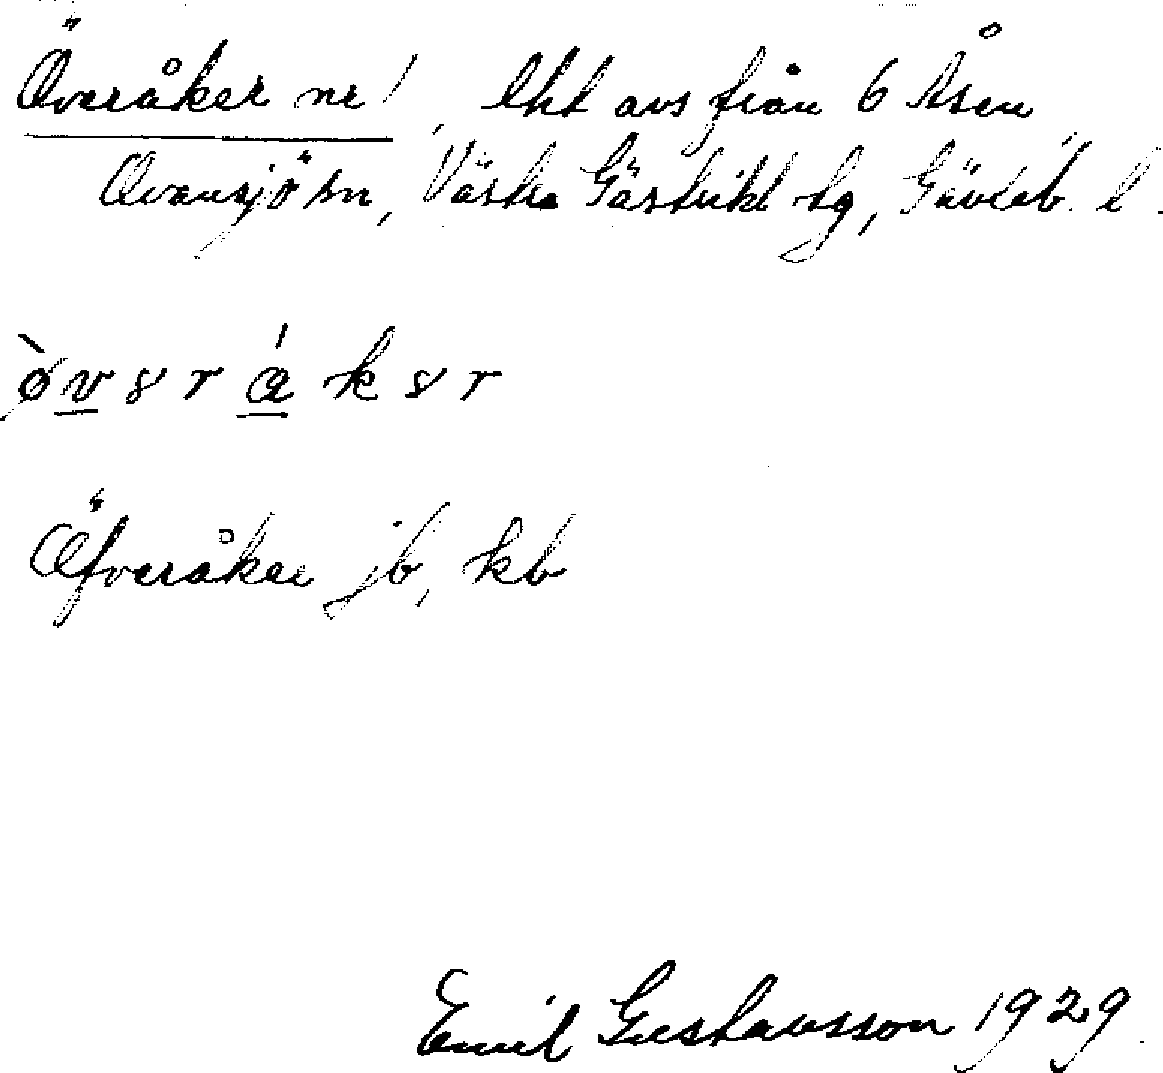 Överåker nr 1, lht avs från 6 Åsen,
Ovansjö sn, Västra Gästrikl tg, Gävleb. l.
øvərákər
Öfveråker jb, kb
Emil Gustavsson 1929.